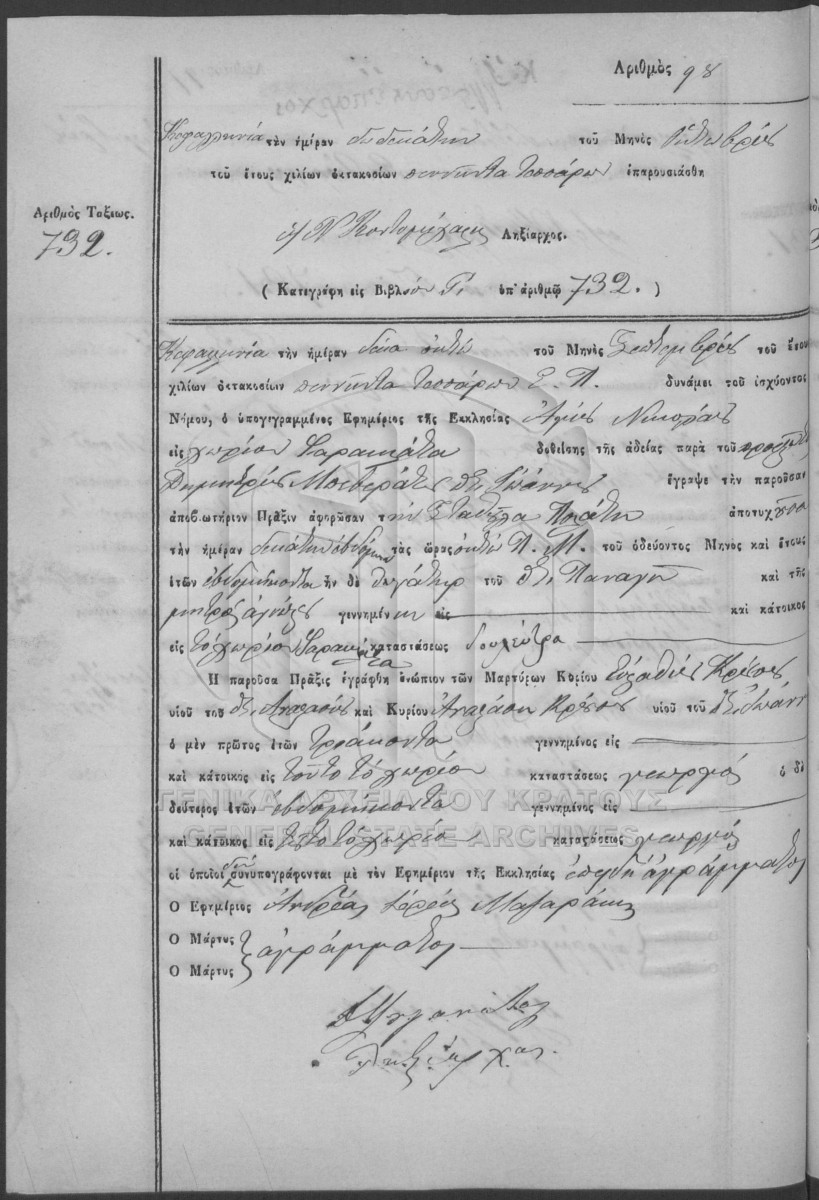 Ἀριθμὸς 98
Κεφαλληνία τὴν ἡμέραν δωδεκάτην τοῦ Μηνὸς Ὀκτωβρίου
τοῦ ἔτους χιλίων ὀκτακοσίων πεννῆντα τεσσάρων ἐπαρουσιάσθη
Ἀριθμὸς Τάξεως.
732.
Ληξίαρχος.
( Κατεγράφη εἰς Βιβλίον Γ, ὑπ' ἀριθμῷ 732. )
Κεφαλληνία τὴν ἡμέραν δέκα ὀκτώ τοῦ Μηνὸς Σεπτεμβρίου τοῦ ἔτους
χιλίων ὀκτακοσίων πεννῆντα τεσσάρων Ε. Π. δυνάμει τοῦ ἰσχύοντος
Νόμου, ὁ ὑπογιγραμμένος Ἐφημέριος τῆς Ἐκκλησίας Ἁγίου Νικολάου
εἰς χωρίον Φαρακλάτα δοθείσης τῆς ἀδείας παρὰ τοῦ
Δημητρίου Ἰωάννου ἔγραψε τὴν παροῦσαν
ἀποβιωτήριον Πρᾶξιν ἀφορῶσαν τὴν ἀποτυχοῦσα
τὴν ἡμέραν δεκάτην ἑβδόμην τὰς ὥρας ὀκτώ Π. Μ. τοῦ ὁδεύοντος Μηνὸς καὶ ἔτους
ἐτῶν ἑβδομήκοντα ἦν δὲ θυγάτηρ τοῦ Παναγῆ καὶ τῆς
μητρός ἀγνώστου γεννημένη εἰς καὶ κάτοικος
εἰς τὸ χωρίον Φαρακλάτα καταστάσεως δουλεύτρα
Ἡ παροῦσα Πρᾶξις ἐγράφθη ἐνώπιον τῶν Μαρτύρων Κυρίου
υἱοῦ τοῦ Ἀναστασίου καὶ Κυρίου Ἀναστάση υἱοῦ τοῦ Ἰωάννου
ὁ μὲν πρῶτος ἐτῶν τριάκοντα γεννημένος εἰς
καὶ κάτοικος εἰς τοῦτο τὸ χωρίον καταστάσεως γεωργός ὁ δὲ
δεύτερος ἐτῶν ἑβδομήκοντα γεννημένος εἰς
καὶ κάτοικος εἰς τοῦτο τὸ χωρίον καταστάσεως γεωργός
οἱ ὁποῖοι δὲν συνυπογράφονται μὲ τὸν Ἐφημέριον τῆς Ἐκκλησίας ἐπειδὴ ἀγράμματοι
Ὁ Ἐφημέριος Ἀνδρέας Ἱερεὺς
Ὁ Μάρτυς } ἀγράμματοι
Ὁ Μάρτυς
Ληξίαρχος.
ΓΕΝΙΚΑ ΑΡΧΕΙΑ ΤΟΥ ΚΡΑΤΟΥΣ
GENERAL STATE ARCHIVES